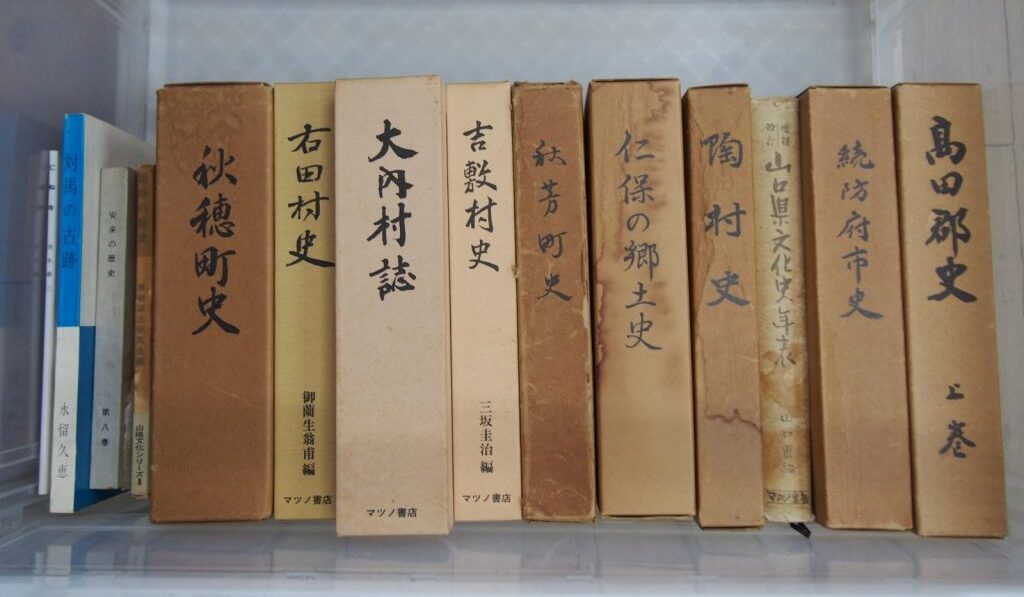 仁和寺
対馬の古跡
永留久恵
安来の歴史
第八巻
山陰文化シリーズ
秋穂町史
右田村史
御薗生翁甫編
マツノ書店
大内村誌
マツノ書店
吉敷村史
三坂圭治編
マツノ書店
秋芳町史
仁保の郷土史
陶村史
増補
山口県文化史年表
マツノ書店
続防府市史
高田郡史
上巻